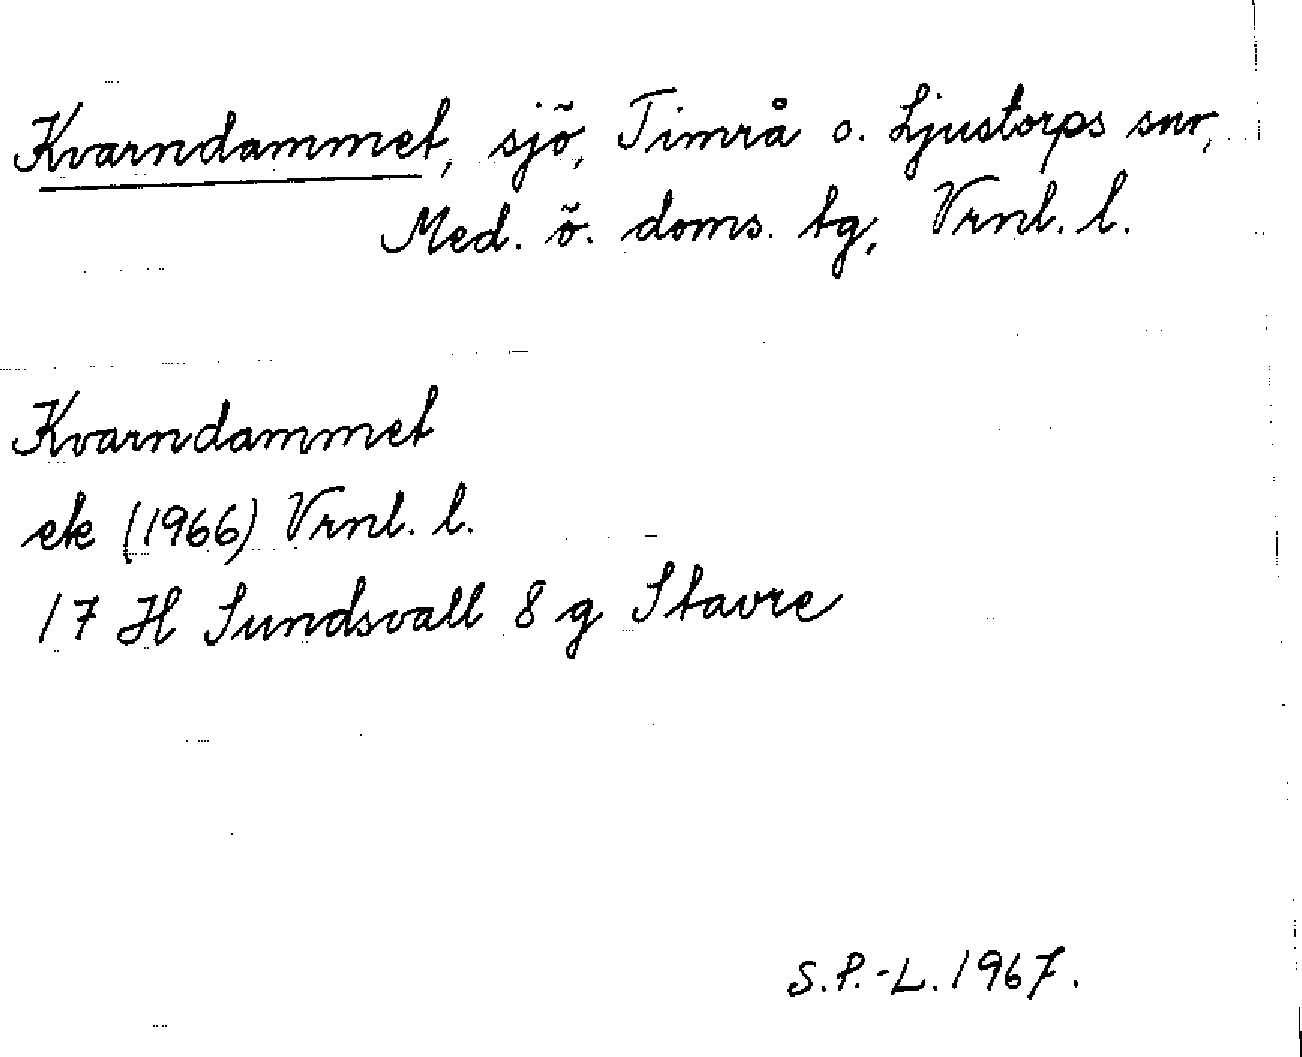 Kvarndammet, sjö, Timrå o. Ljustorps snr,
Med. ö. doms. tg, Vrnl. l.
Kvarndammet
ek (1966) Vrnl. l.
17 H Sundsvall 8 g Stavre
S.P.-L. 1967.